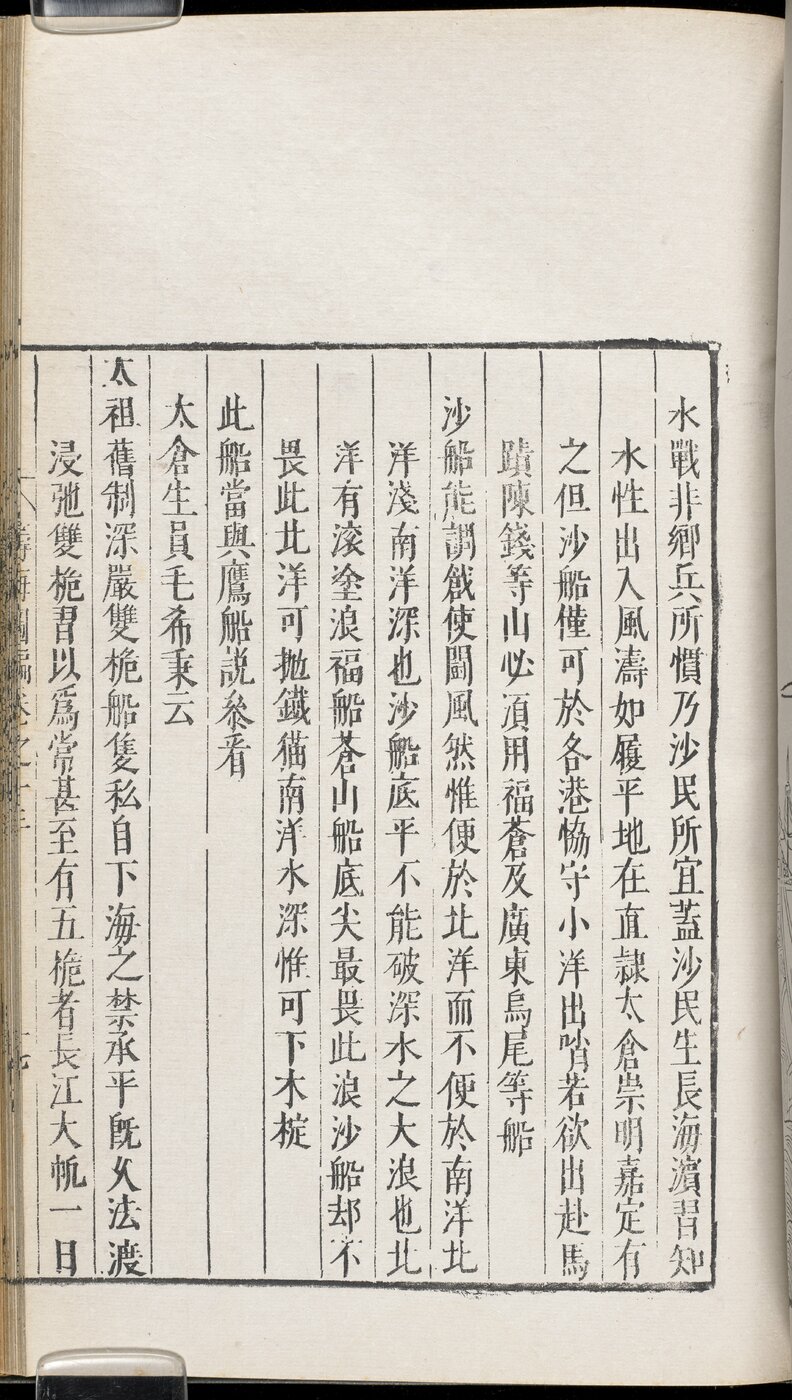 水戰非鄉兵所慣乃沙民所宜蓋沙民生長海濵習知
水性出入風濤如履平地在直隷太倉崇明嘉定有
之但沙船僅可於各港恊守小洋出哨若欲出赴馬
蹟陳錢等山必湏用福蒼及廣東烏尾等船
沙船能調戧使鬭風然惟便於北洋而不便於南洋北
洋淺南洋深也沙船底平不能破深水之大浪也北
洋有滚塗浪福船蒼山船底尖最畏此浪沙船却不
畏此北洋可抛鐡猫南洋水深惟可下木椗
此船當與鷹船説叅看
太倉生員毛希秉云
太祖舊制深嚴雙桅船隻私自下海之禁承平旣久法漸
浸弛雙桅習以爲常甚至有五桅者長江大帆一日
籌海圖編卷之十三